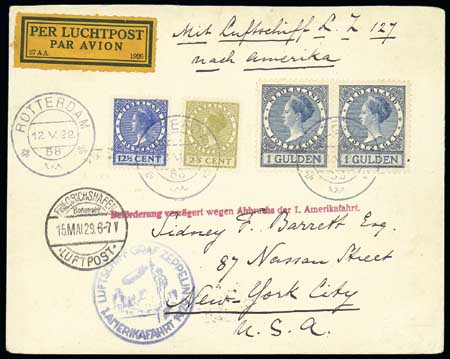 PER LUCHTPOST
PAR AVION
37 AA. 1926
Mit Luftschiff L. Z. 127
nach Amerika
ROTTERDAM
12.V.29
58
NEDERLAND
12½ CENT
25 CENT
NEDERLAND
1 GULDEN
NEDERLAND
1 GULDEN
FRIEDRICHSHAFEN
Bodensee
15.MAI 29.6-7 V
LUFTPOST
Beförderung verzögert wegen Abbruchs der 1. Amerikafahrt.
LUFTSCHIFF GRAF ZEPPELIN
1. AMERIKAFAHRT
Sidney F. Barrett Esq.
87 Nassau Street
New-York City
U. S. A.